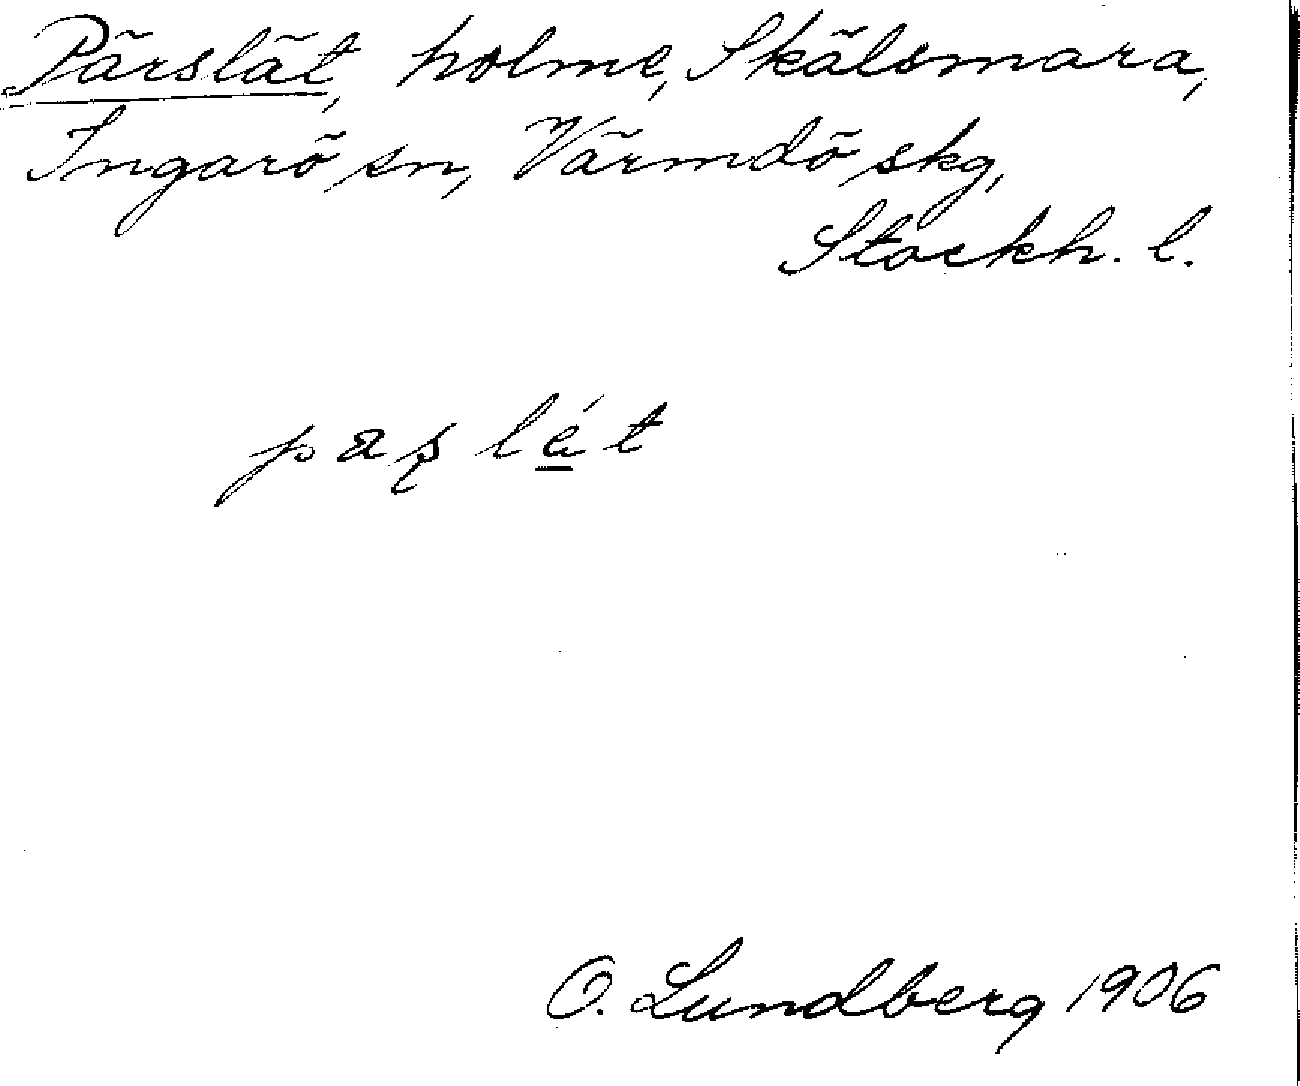 Pärslät, holme, Skälsmara,
Ingarö sn, Värmdö skg,
Stockh. l.
O. Lundberg 1906